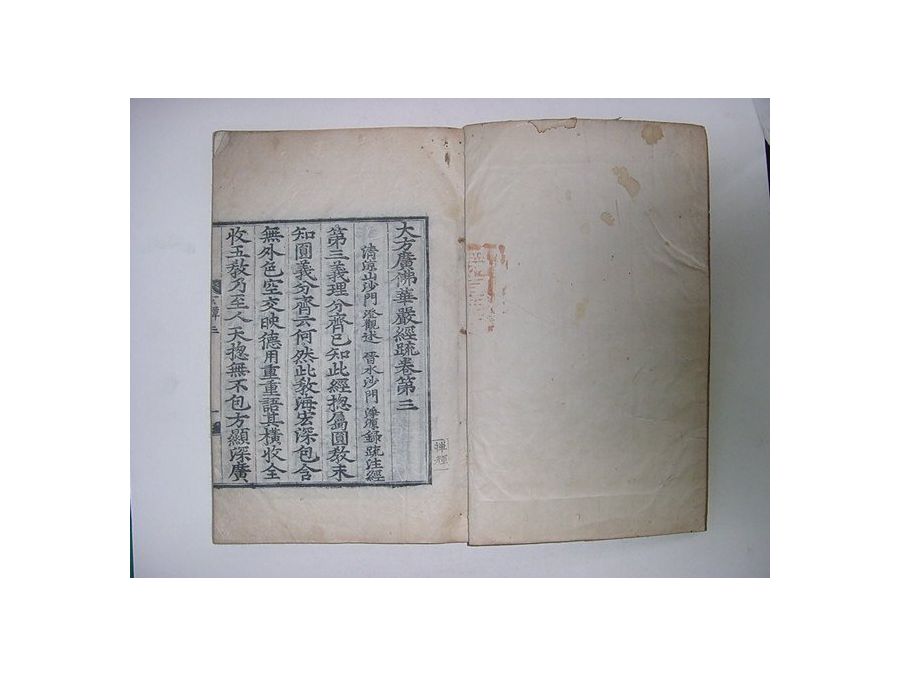 大方廣佛華嚴經䟽卷第三
清涼山沙門 澄觀述 晉水沙門 淨源録䟽注經
第三義理分齊已知此經揔属圓教未
知圓義分齊云何然此教海宏深包含
無外色空交映德用重重語其橫收全
收五教乃至人天揔無不包方顯深廣